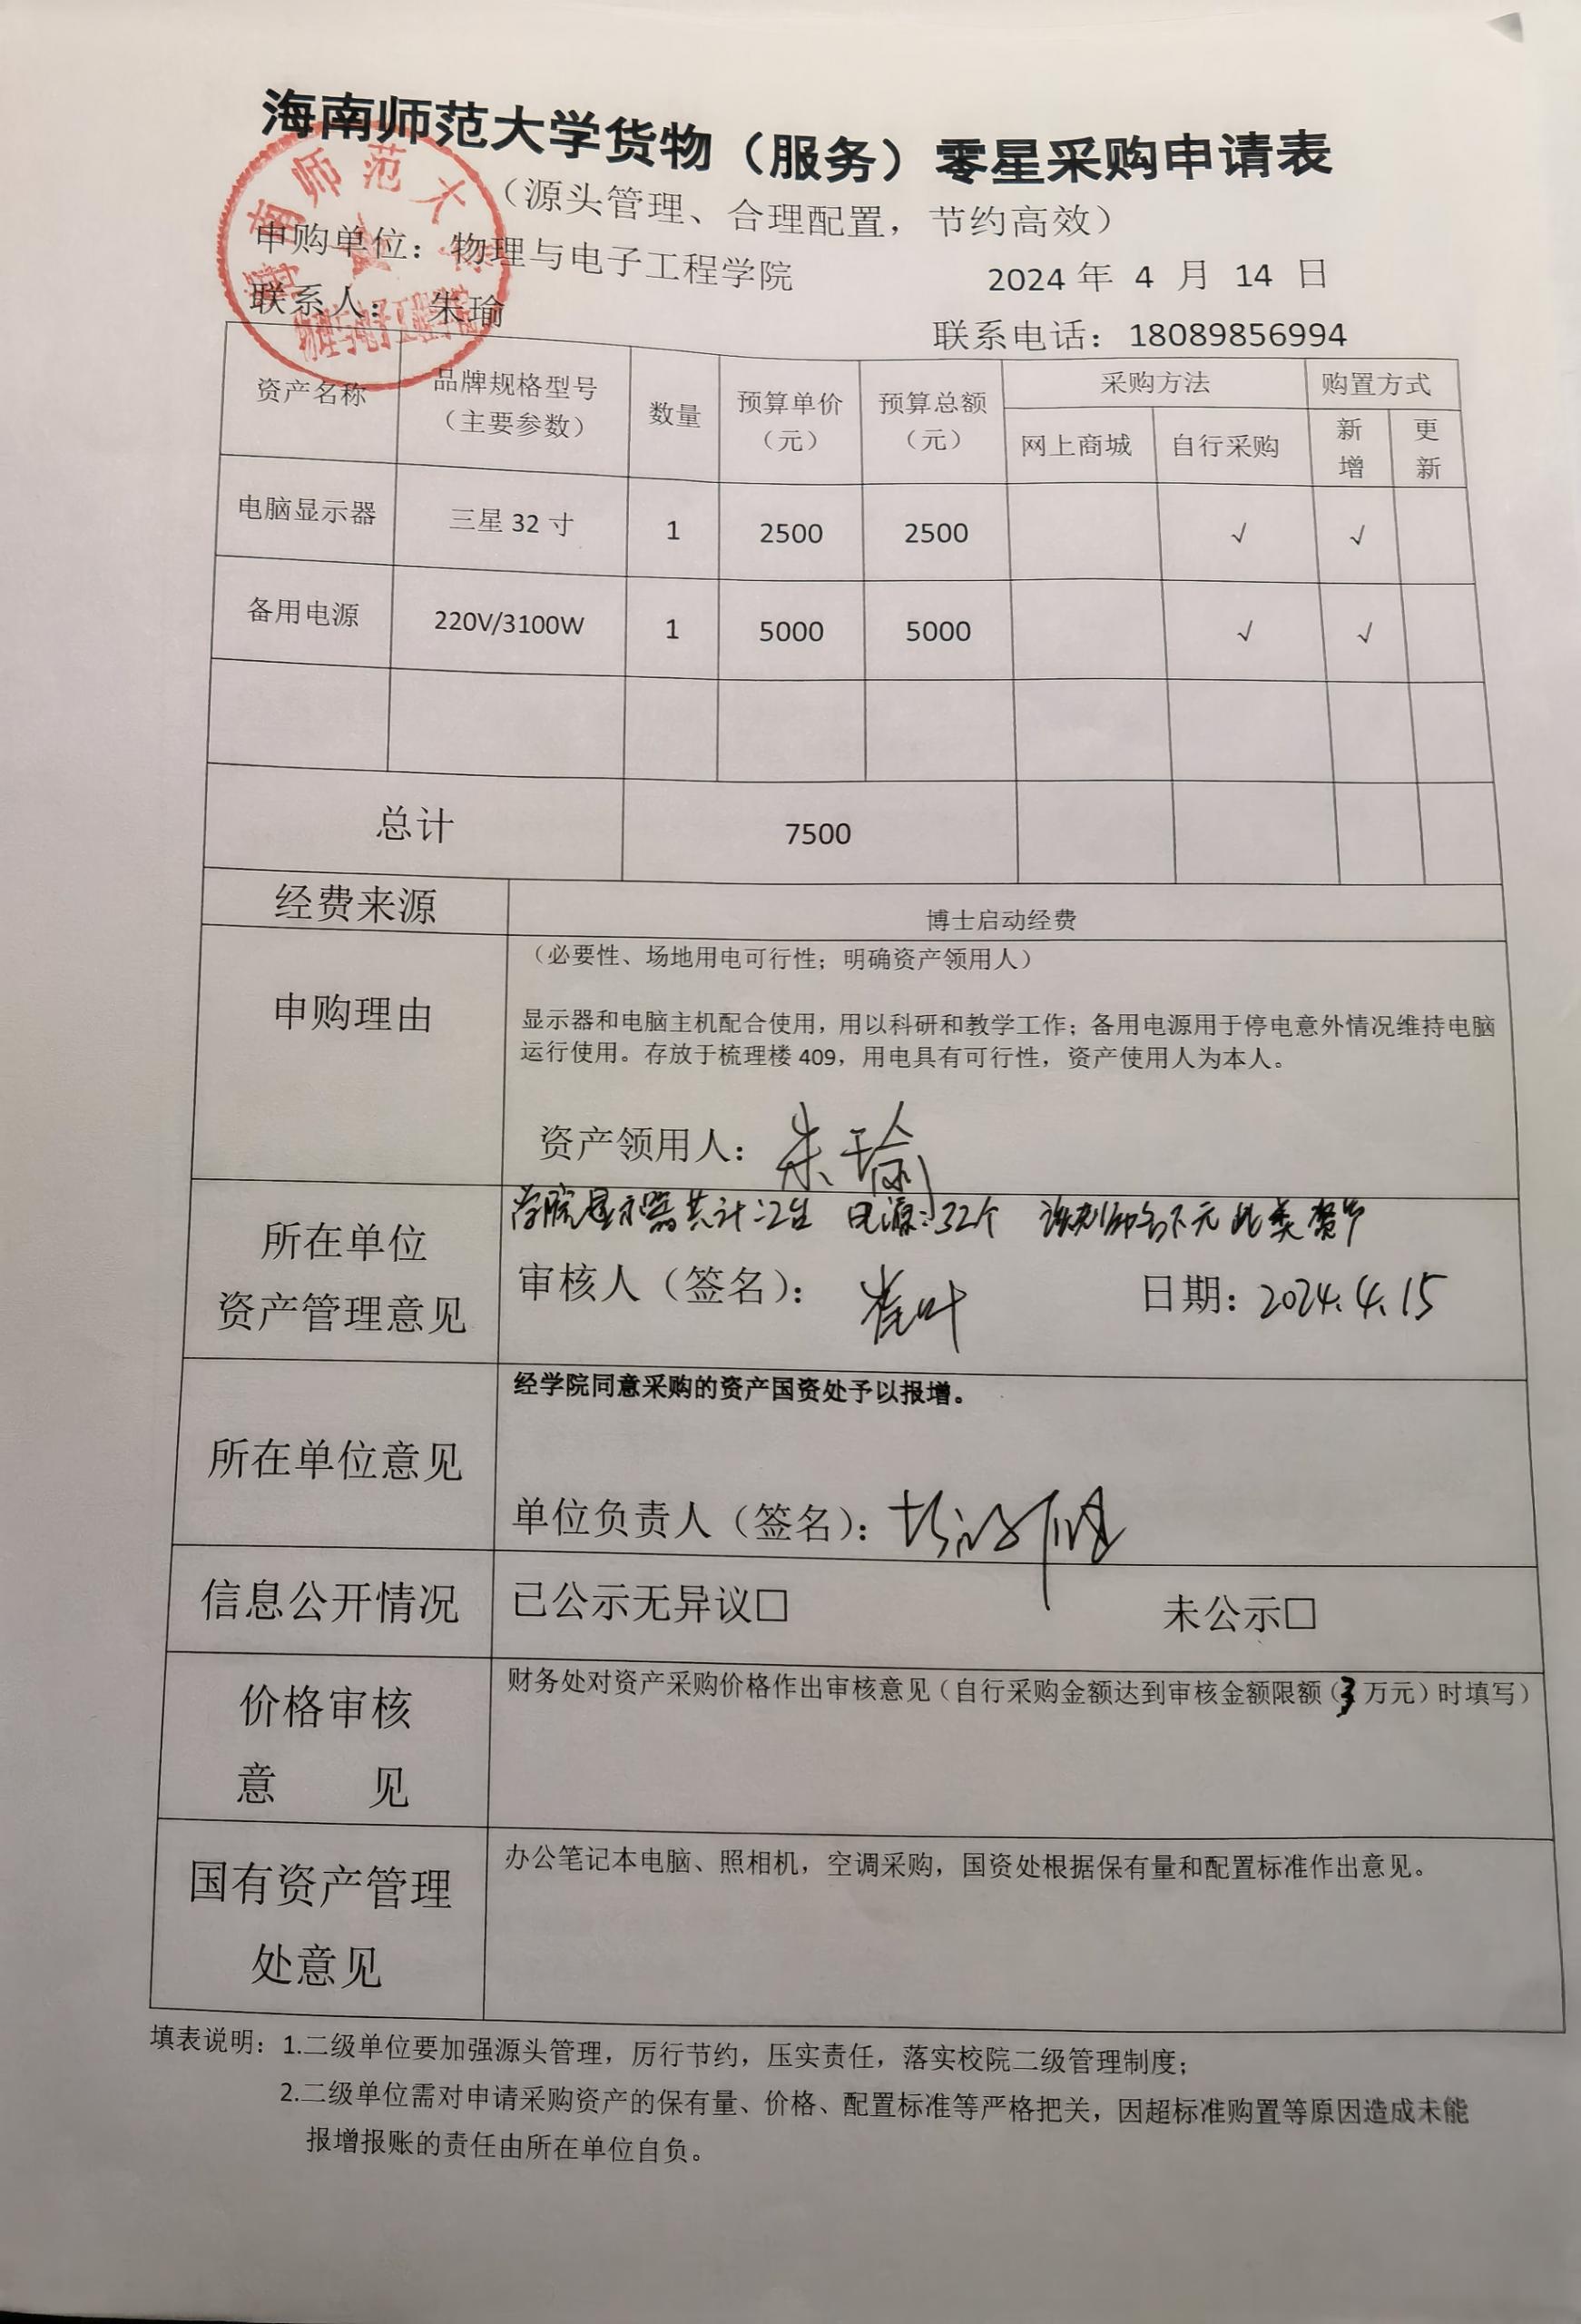 海南师范大学货物（服务）零星采购申请表
（源头管理、合理配置，节约高效）
申购单位：物理与电子工程学院
2024 年 4 月 14 日
联系人： 朱瑜
联系电话：18089856994
海南师范大学
物理与电子工程学院
资产名称 品牌规格型号（主要参数） 数量 预算单价（元） 预算总额（元） 采购方法 购置方式
网上商城 自行采购 新增 更新
电脑显示器 三星 32 寸 1 2500 2500 √ √
备用电源 220V/3100W 1 5000 5000 √ √
总计 7500
经费来源 博士启动经费
申购理由
（必要性、场地用电可行性；明确资产领用人）
显示器和电脑主机配合使用，用以科研和教学工作；备用电源用于停电意外情况维持电脑
运行使用。存放于梳理楼 409，用电具有可行性，资产使用人为本人。
资产领用人：朱瑜
所在单位
资产管理意见
学院显示器共计 台 电源：32个 该老师名下无此类资产
审核人（签名）：
日期：2024.4.15
所在单位意见
经学院同意采购的资产国资处予以报增。
单位负责人（签名）：
信息公开情况 已公示无异议□ 未公示□
价格审核
意 见
财务处对资产采购价格作出审核意见（自行采购金额达到审核金额限额（3 万元）时填写）
国有资产管理
处意见
办公笔记本电脑、照相机，空调采购，国资处根据保有量和配置标准作出意见。
填表说明：1.二级单位要加强源头管理，厉行节约，压实责任，落实校院二级管理制度；
2.二级单位需对申请采购资产的保有量、价格、配置标准等严格把关，因超标准购置等原因造成未能
报增报账的责任由所在单位自负。